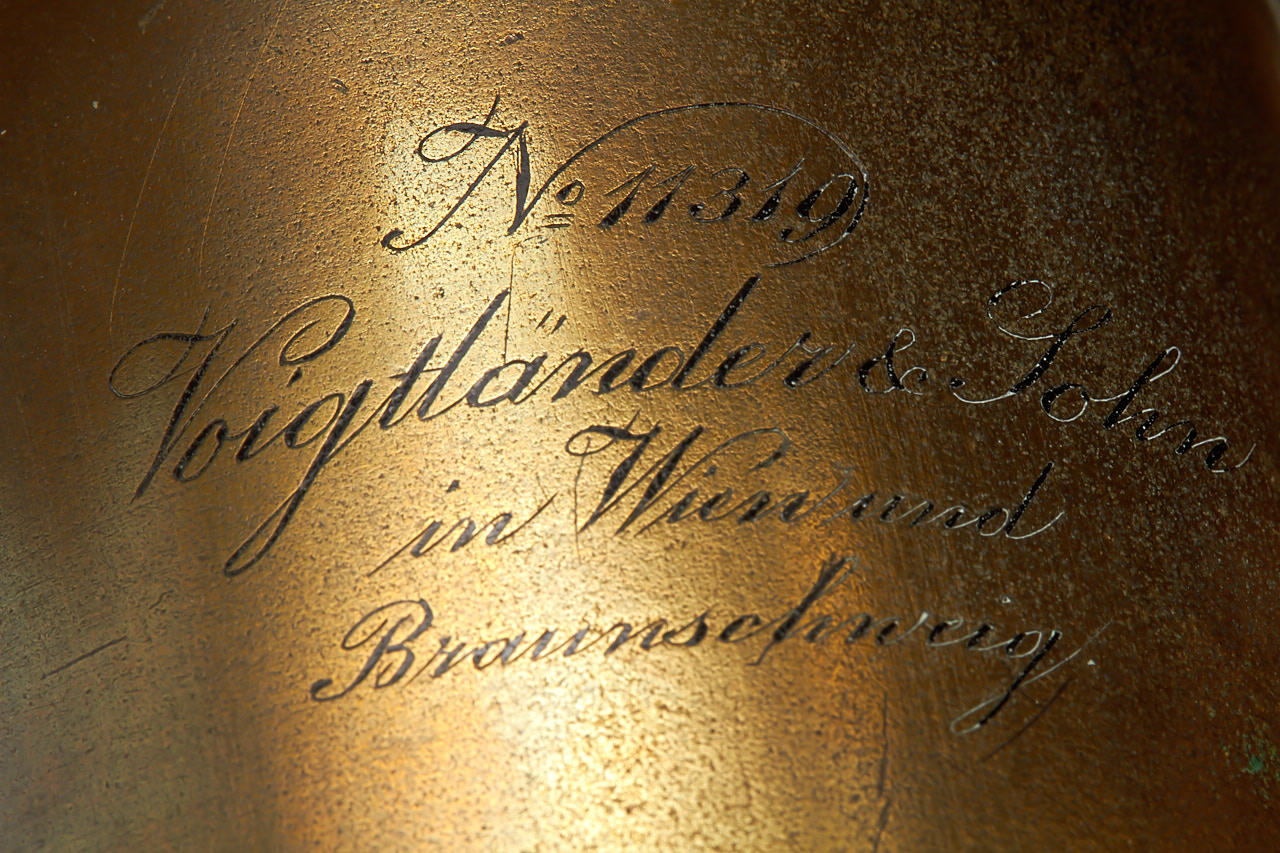 No 11319
Voigtländer & Sohn
in Wien und
Braunschweig